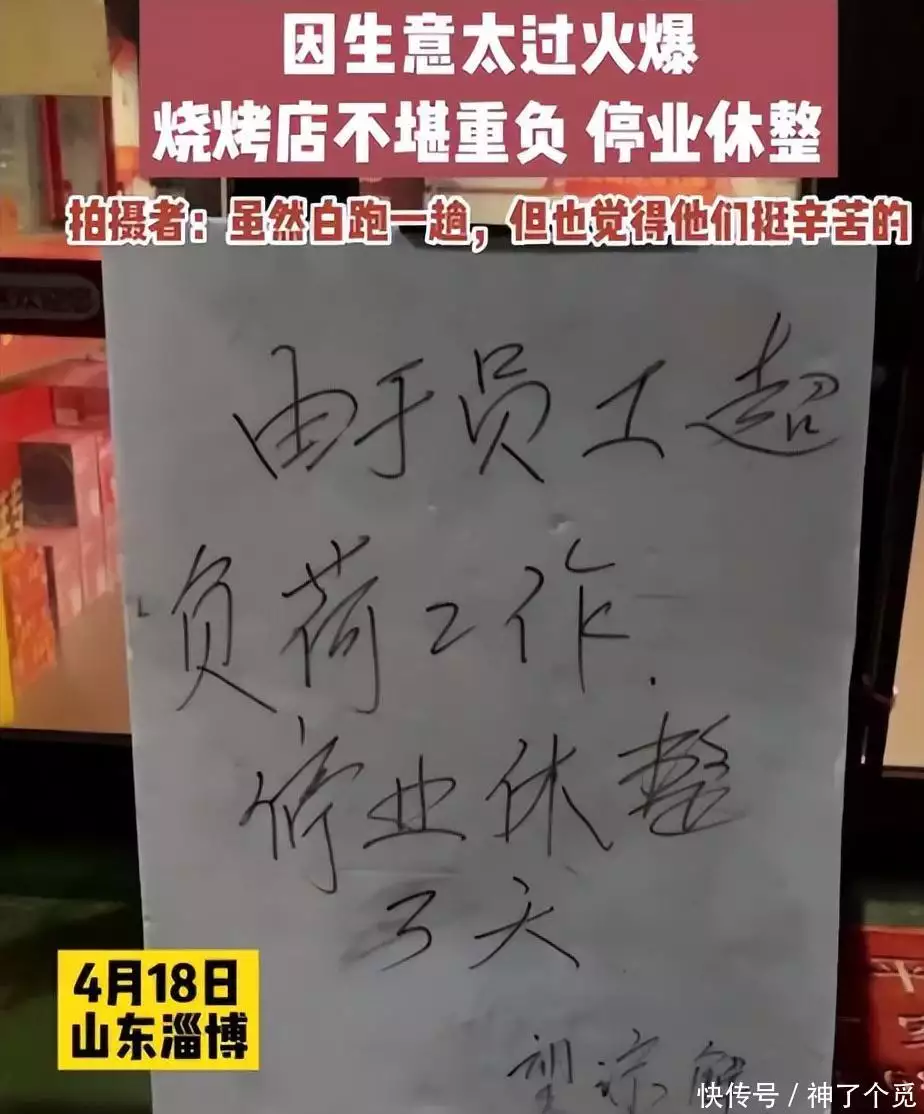 因生意太过火爆
烧烤店不堪重负 停业休整
拍摄者：虽然白跑一趟，但也觉得他们挺辛苦的
由于员工超
负荷工作.
停业休整
3天
望谅解
4月18日
山东淄博
快传号 / 神了个觅